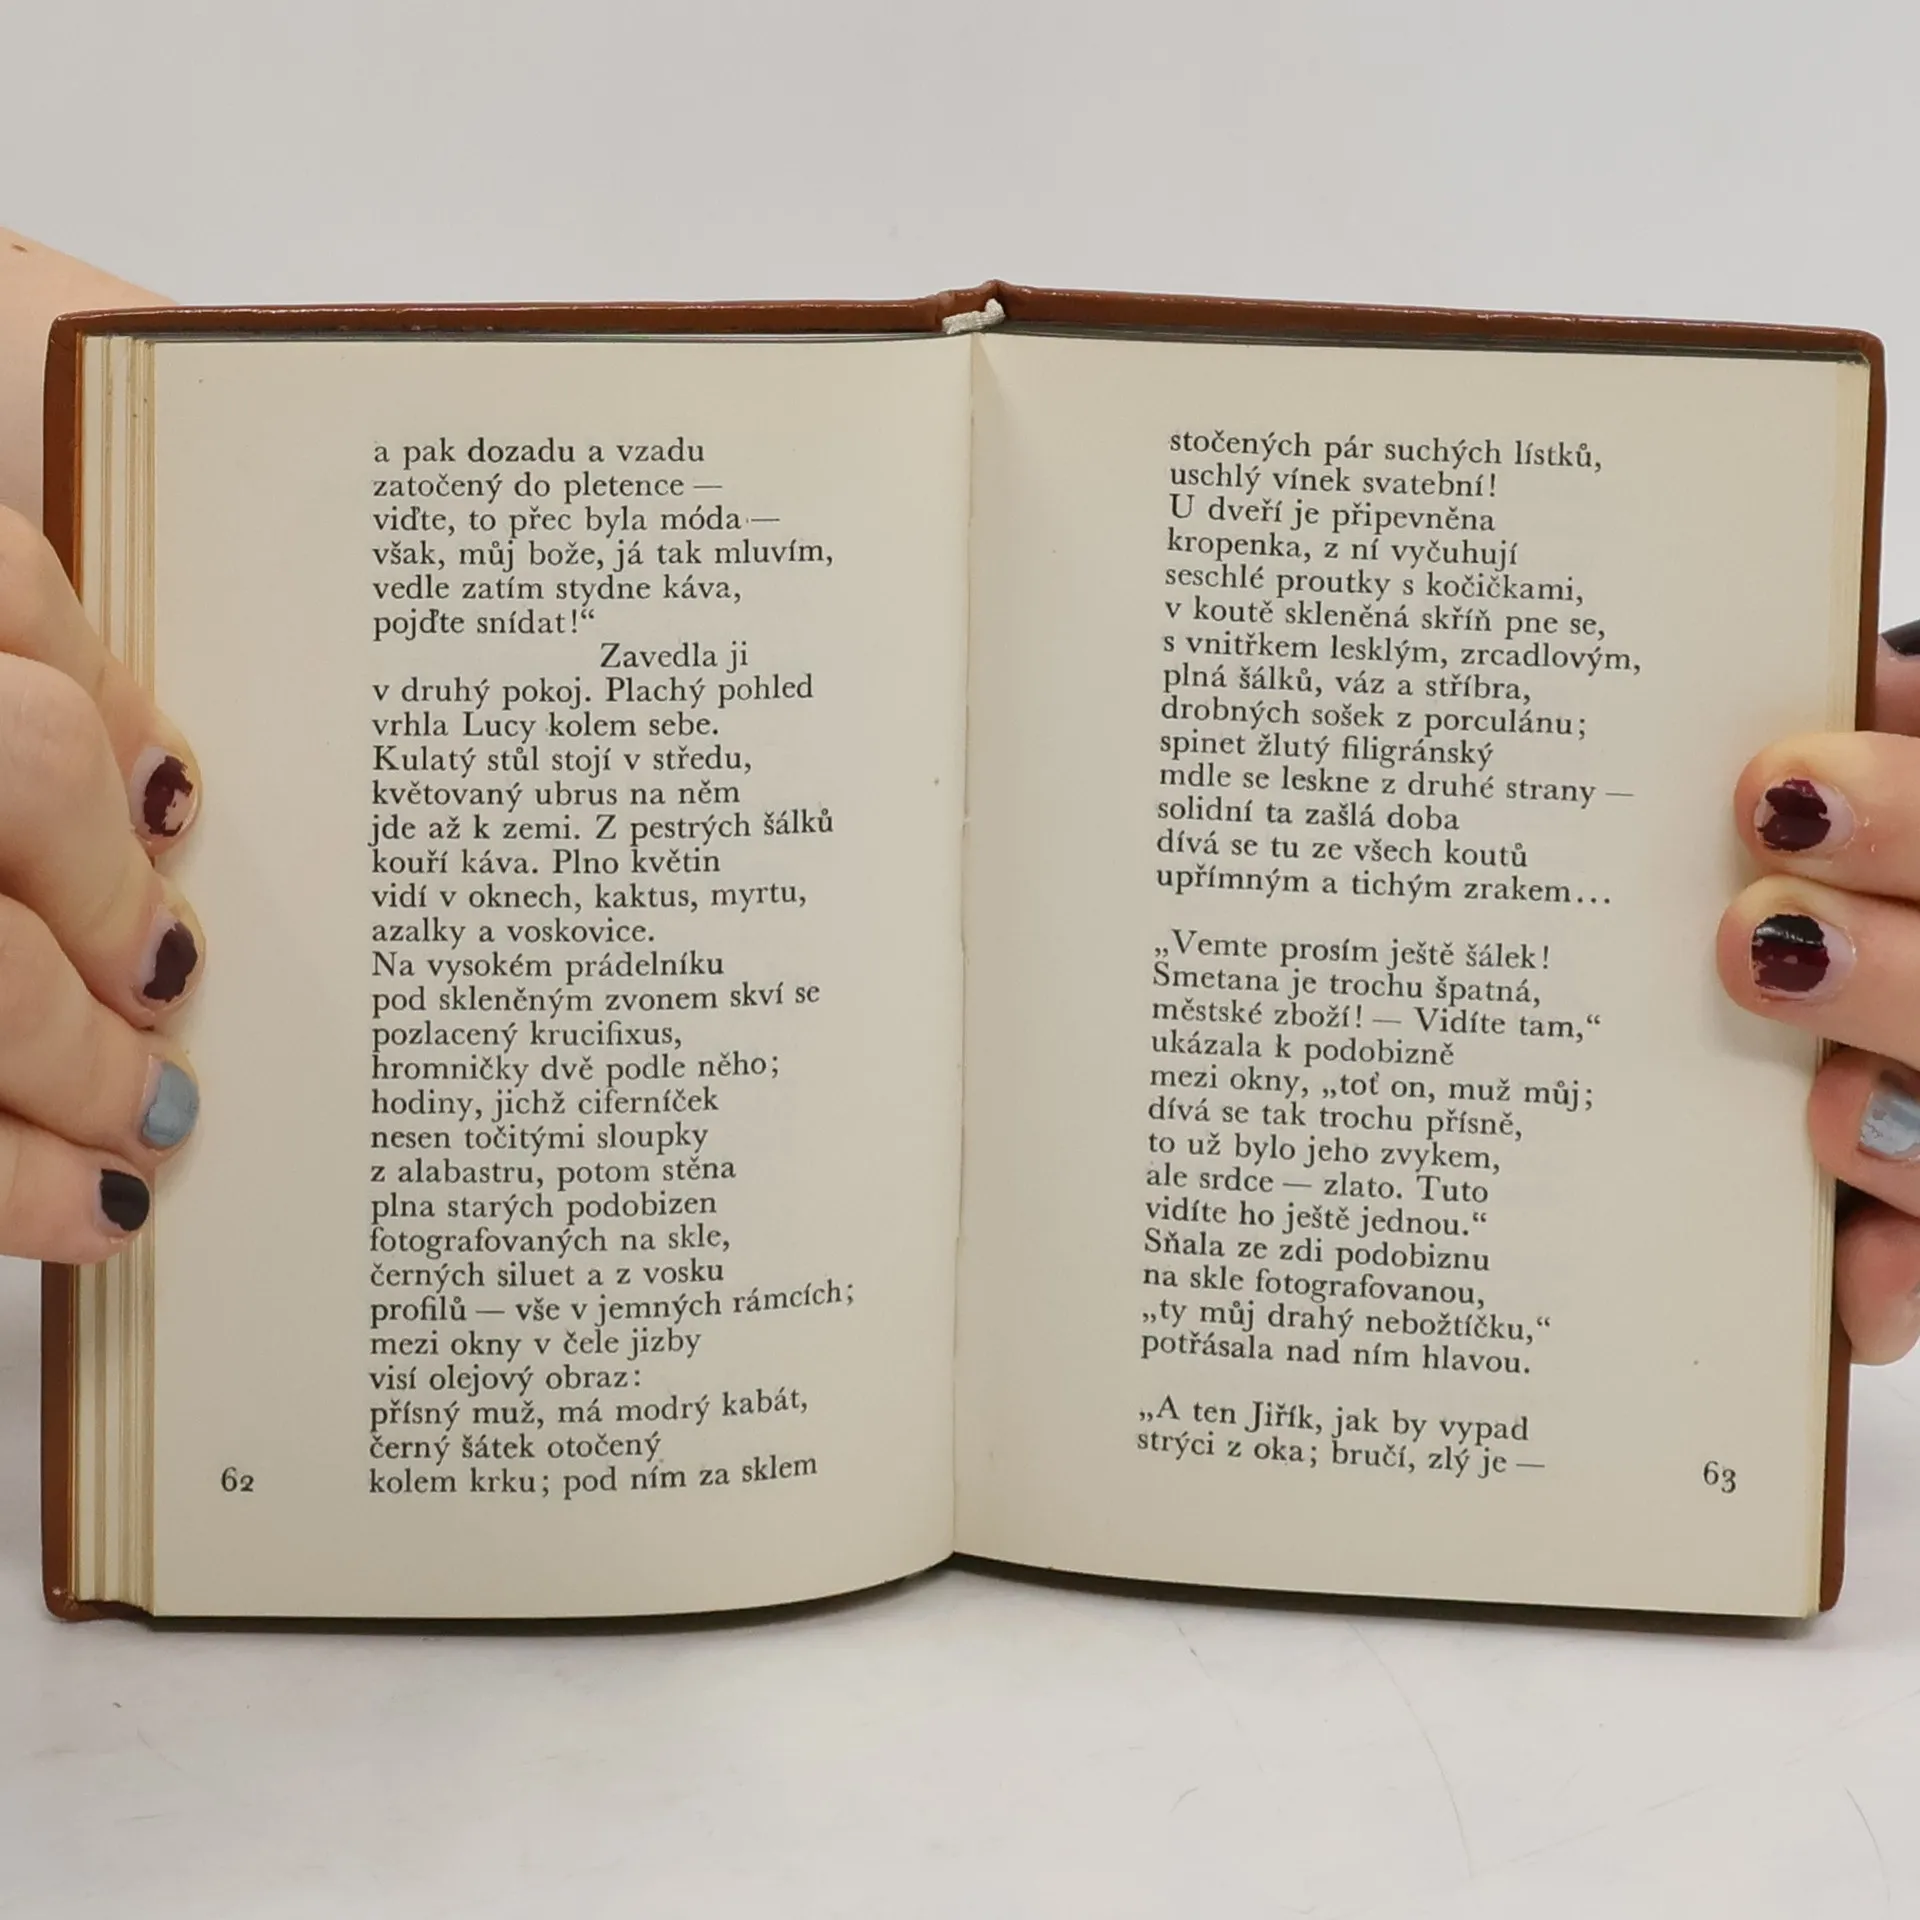 a pak dozadu a vzadu
zatočený do pletence —
viďte, to přec byla móda —
však, můj bože, já tak mluvím,
vedle zatím stydne káva,
pojďte snídat!“
Zavedla ji
v druhý pokoj. Plachý pohled
vrhla Lucy kolem sebe.
Kulatý stůl stojí v středu,
květovaný ubrus na něm
jde až k zemi. Z pestrých šálků
kouří káva. Plno květin
vidí v oknech, kaktus, myrtu,
azalky a voskovice.
Na vysokém prádelníku
pod skleněným zvonem skví se
pozlacený krucifixus,
hromničky dvě podle něho;
hodiny, jichž ciferníček
nesen točitými sloupky
z alabastru, potom stěna
plna starých podobizen
fotografovaných na skle,
černých siluet a z vosku
profilů — vše v jemných rámcích;
mezi okny v čele jizby
visí olejový obraz:
přísný muž, má modrý kabát,
černý šátek otočený
kolem krku; pod ním za sklem
62
stočených pár suchých lístků,
uschlý vínek svatební!
U dveří je připevněna
kropenka, z ní vyčuhují
seschlé proutky s kočičkami,
v koutě skleněná skříň pne se,
s vnitřkem lesklým, zrcadlovým,
plná šálků, váz a stříbra,
drobných sošek z porculánu;
spinet žlutý filigránský
mdle se leskne z druhé strany —
solidní ta zašlá doba
dívá se tu ze všech koutů
upřímným a tichým zrakem...
„Vemte prosím ještě šálek!
Smetana je trochu špatná,
městské zboží! — Vidíte tam,“
ukázala k podobizně
mezi okny, „toť on, muž můj;
dívá se tak trochu přísně,
to už bylo jeho zvykem,
ale srdce — zlato. Tuto
vidíte ho ještě jednou.“
Sňala ze zdi podobiznu
na skle fotografovanou,
„ty můj drahý nebožtíčku,“
potřásala nad ním hlavou.
„A ten Jiřík, jak by vypad
strýci z oka; bručí, zlý je —
63